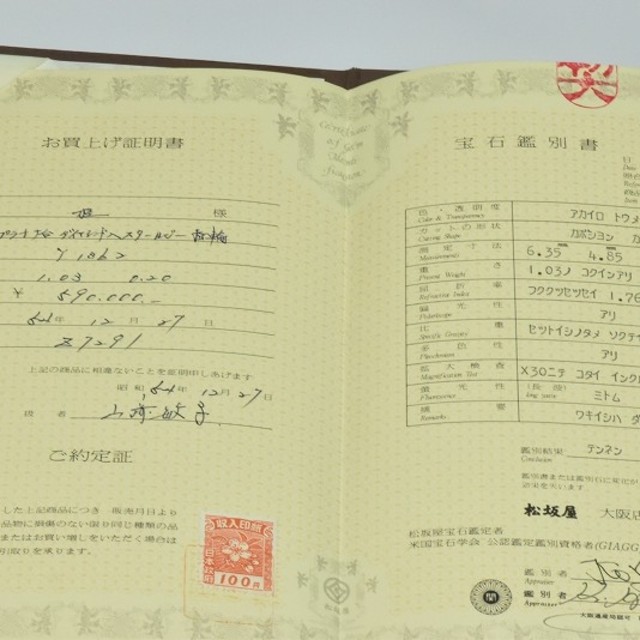 お買上げ証明書
様
プラチナ台 ダイヤモンド入スタールビー 指輪
Y 1862
1.03 0.20
¥ 590,000.-
54年 12月 27日
Z7291
上記の商品に相違ないことを証明申しあげます。
昭和 54年 12月 27日
扱者
ご約定証
した上記商品につき 販売月日より
品物に損傷のない限り同じ種類の品
または お買い増しをいただく場合は
引取りを承ります。
収入印紙
日本政府
100円
宝石鑑別書
色・透明度 アカイロ トウメ
Color & Transparency
カットの形状 カボション カ
Cutting Shape
測定寸法 6.35 mm 4.85 mm
Measurements
重さ 1.03ノ コクインアリ
Present Weight
屈折率 フククツセッセイ 1.76
Refractive Index
偏光性 アリ
Polariscope
比重 セットイシノタメ ソクテイ
Specific Gravity
多色性 アリ
Pleochroism
拡大検査 X30ニテ コタイ インク
Magnification Test
蛍光性 (長波) ミトム
Fluorescence long wave
摘要 ワキイシハ ダ
Remarks
鑑別結果 テンネン
Conclusion
松坂屋 大阪店
松坂屋宝石鑑定者
米国宝石学会 公認鑑定鑑別資格者(GIAGG
鑑別者
Appraiser
鑑別者
Appraiser
大阪通産局認可